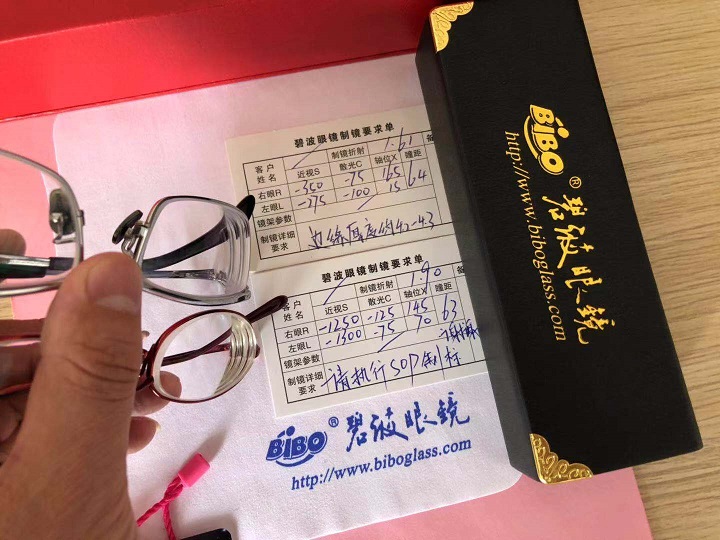 碧波眼镜制镜要求单
制镜折射 1.61
客户姓名 近视S 散光C 轴位X 瞳距
右眼R -350 -75 165 64
左眼L -275 -100 15
镜架参数
制镜详细要求 边缘厚度约42-43
碧波眼镜制镜要求单
制镜折射 1.90
客户姓名 近视S 散光C 轴位X 瞳距
右眼R -1250 -125 145 63
左眼L -1300 -75 70
镜架参数
制镜详细要求 请执行SOP制标
BiBO® 碧波眼镜
http://www.biboglass.com
BiBO® 碧波眼镜
http://www.biboglass.com